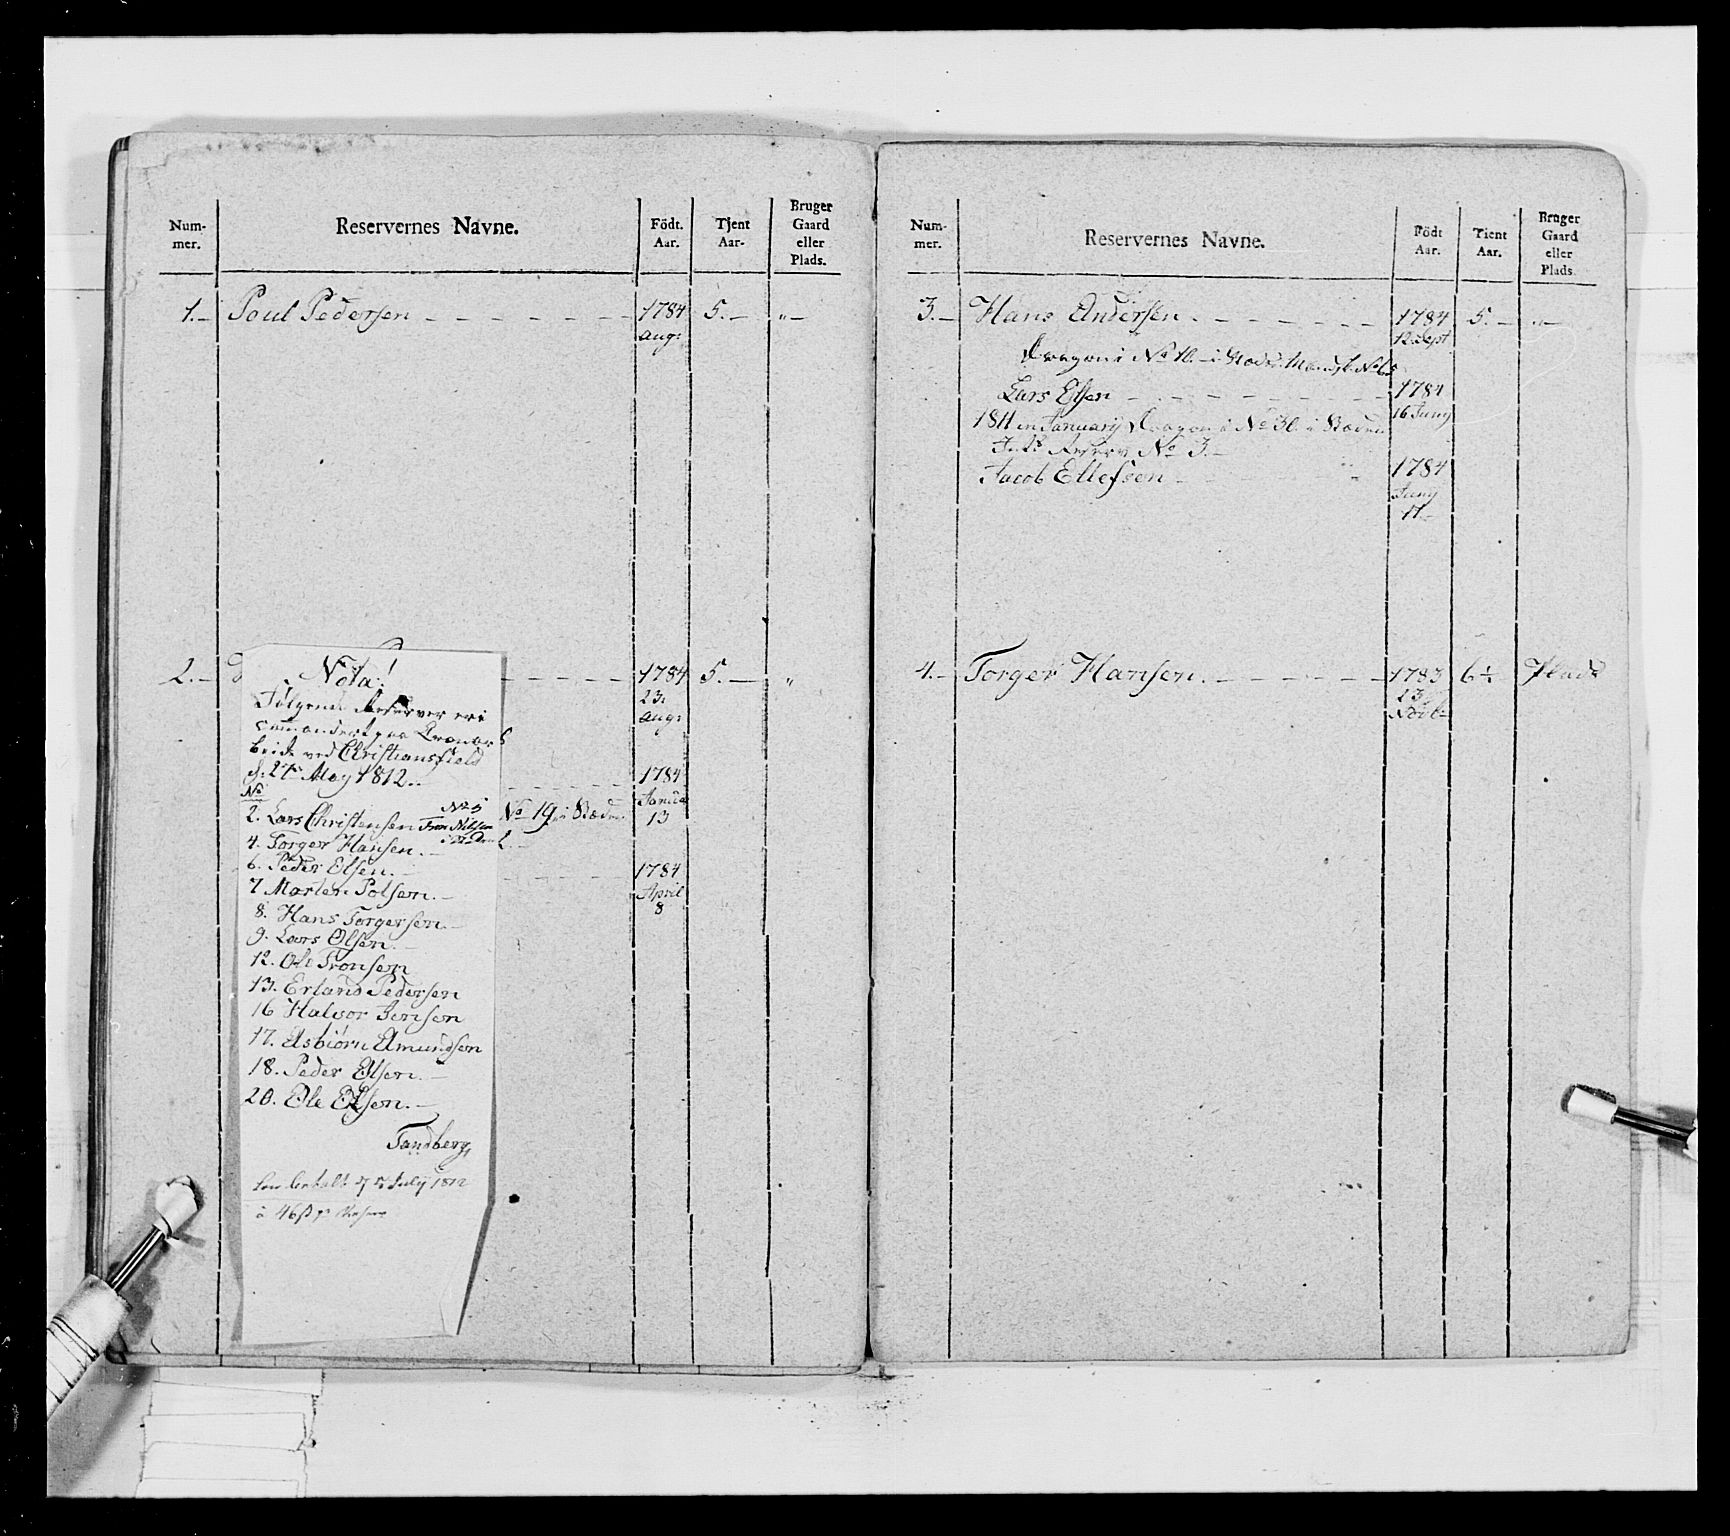 Num-
mer.
Reservernes Navne.
Födt.
Aar.
Tjent
Aar.
Bruger
Gaard
eller
Plads.
1.– Poul Pedersen 1784 5.– „–
Aug:
2.– 1784 5.– „
23.
Aug:
1784
No 19. i Stæden Janua
13
1784
April
8
Nota!
Følgende Reserver er
commandert paa
beide ved Christiansfield
d. 27 May 1812..
No
2. Lars Christensen No 5 Tron Nilsen
4. Torger Hansen.
6. Peder Olsen.
7 Morten Polsen.
8. Hans Torgersen.
9. Lars Olsen.
12. Ole Tronsen
13. Erland Pedersen
16 Halvor Jensen
17. Asbiørn Amundsen
18. Peder Olsen.
20. Ole Olsen.
Tandberg,
betalt d 5 July 1812
à 46 ß pr
Num-
mer.
Reservernes Navne.
Födt
Aar.
Tient
Aar.
Bruger
Gaard
eller
Plads
3.– Hans Andersen 1784 5.– „–
12 Sept
Dragon i No 10. – i No 65
Lars Olsen 1784
16 Juny
1811 in January Dragon i No 30. i Stæden
Reserv No 3.–
Jacob Ellefsen 1784
Juny
11
4.– Torger Hansen. 1783 6½ Plads
23
Novb: